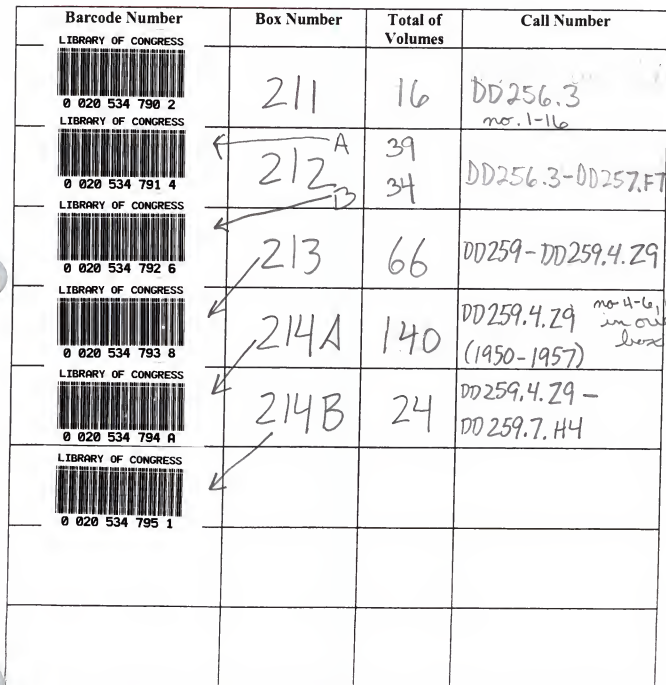 Barcode Number Box Number Total of Volumes Call Number
LIBRARY OF CONGRESS
0 020 534 790 2
211 16 DD256.3
no. 1-16
LIBRARY OF CONGRESS
0 020 534 791 4
212 A 39
B 34
DD256.3-DD257.F7
LIBRARY OF CONGRESS
0 020 534 792 6
213 66 DD259-DD259.4.Z9
LIBRARY OF CONGRESS
0 020 534 793 8
214A 140 DD259.4.Z9 no 4-6, in one box
(1950-1957)
LIBRARY OF CONGRESS
0 020 534 794 A
214B 24 DD259.4.Z9 -
DD259.7.H4
LIBRARY OF CONGRESS
0 020 534 795 1